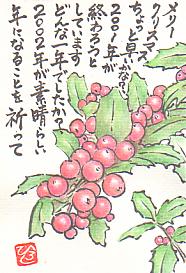 メリー
クリスマス
ちょっと早いかな?
2001年が
終わろうと
しています
どんな一年でしたか?
2002年が素晴らしい
年になることを祈って